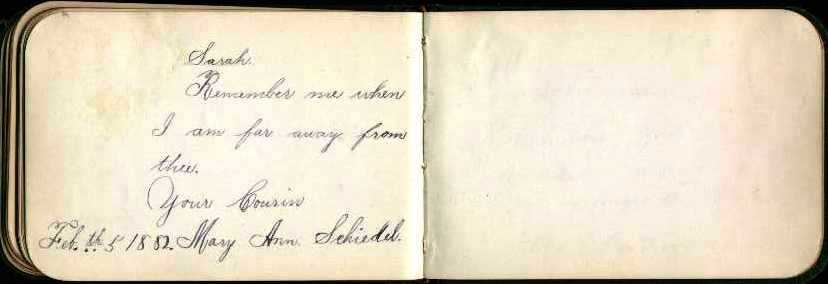 Sarah.
Remember me when
I am far away from
thee.
Your Cousin
Feb. th 5 1882. Mary Ann. Schiedel.